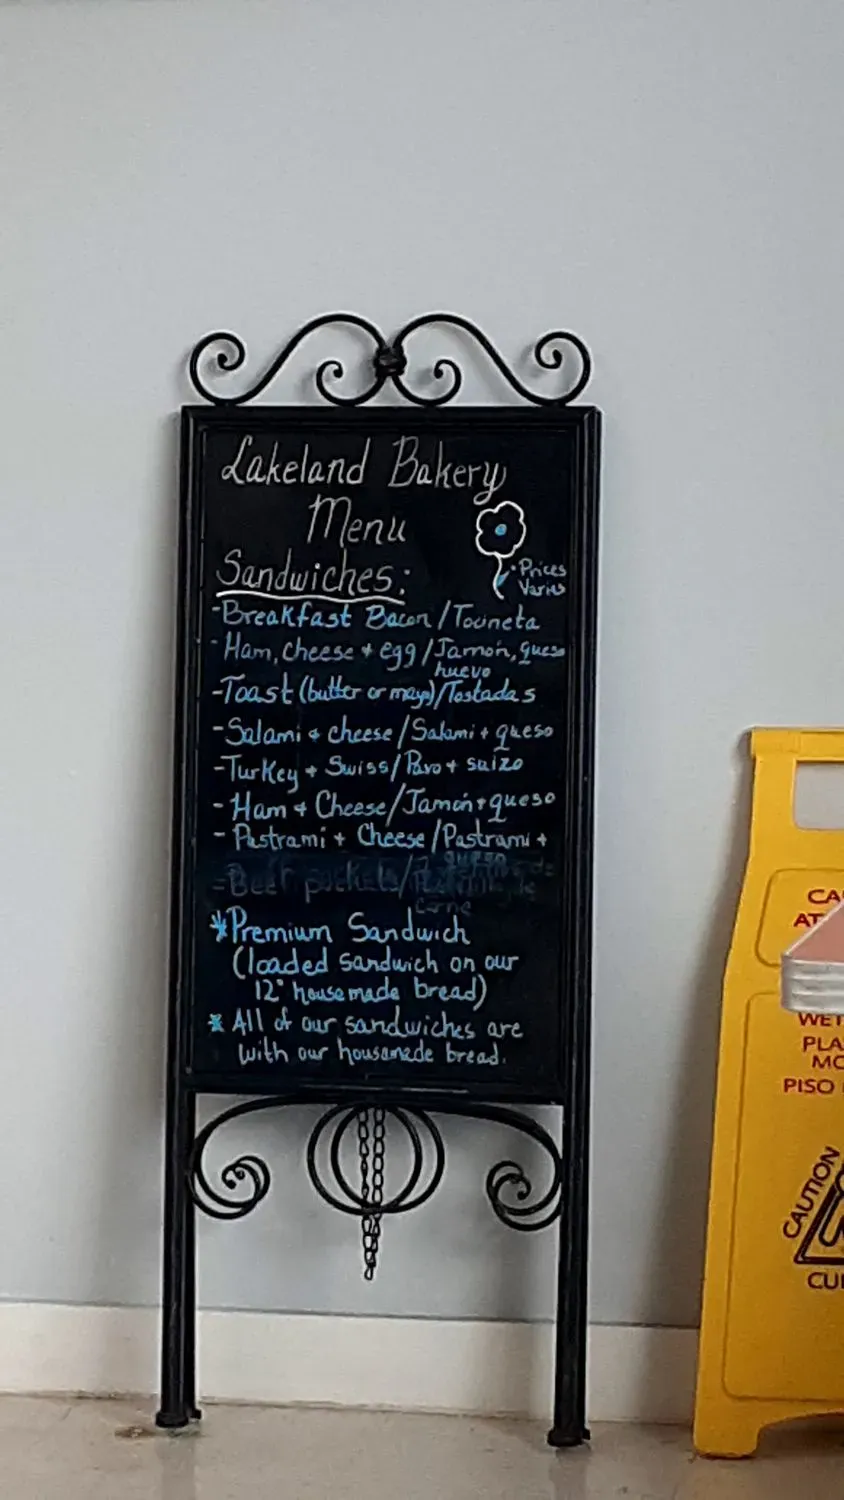 Lakeland Bakery
Menu
Sandwiches:
• Prices
Varies
- Breakfast Bacon / Tocineta
- Ham, cheese + egg / Jamón, queso
huevo
- Toast (butter or mayo) / Tostadas
- Salami + cheese / Salami + queso
- Turkey + Swiss / Pavo + suizo
- Ham + Cheese / Jamón + queso
- Pastrami + Cheese / Pastrami +
queso
- Beef pockets /
carne
* Premium Sandwich
(loaded sandwich on our
12" housemade bread)
* All of our sandwiches are
with our housemade bread.
CAUTION